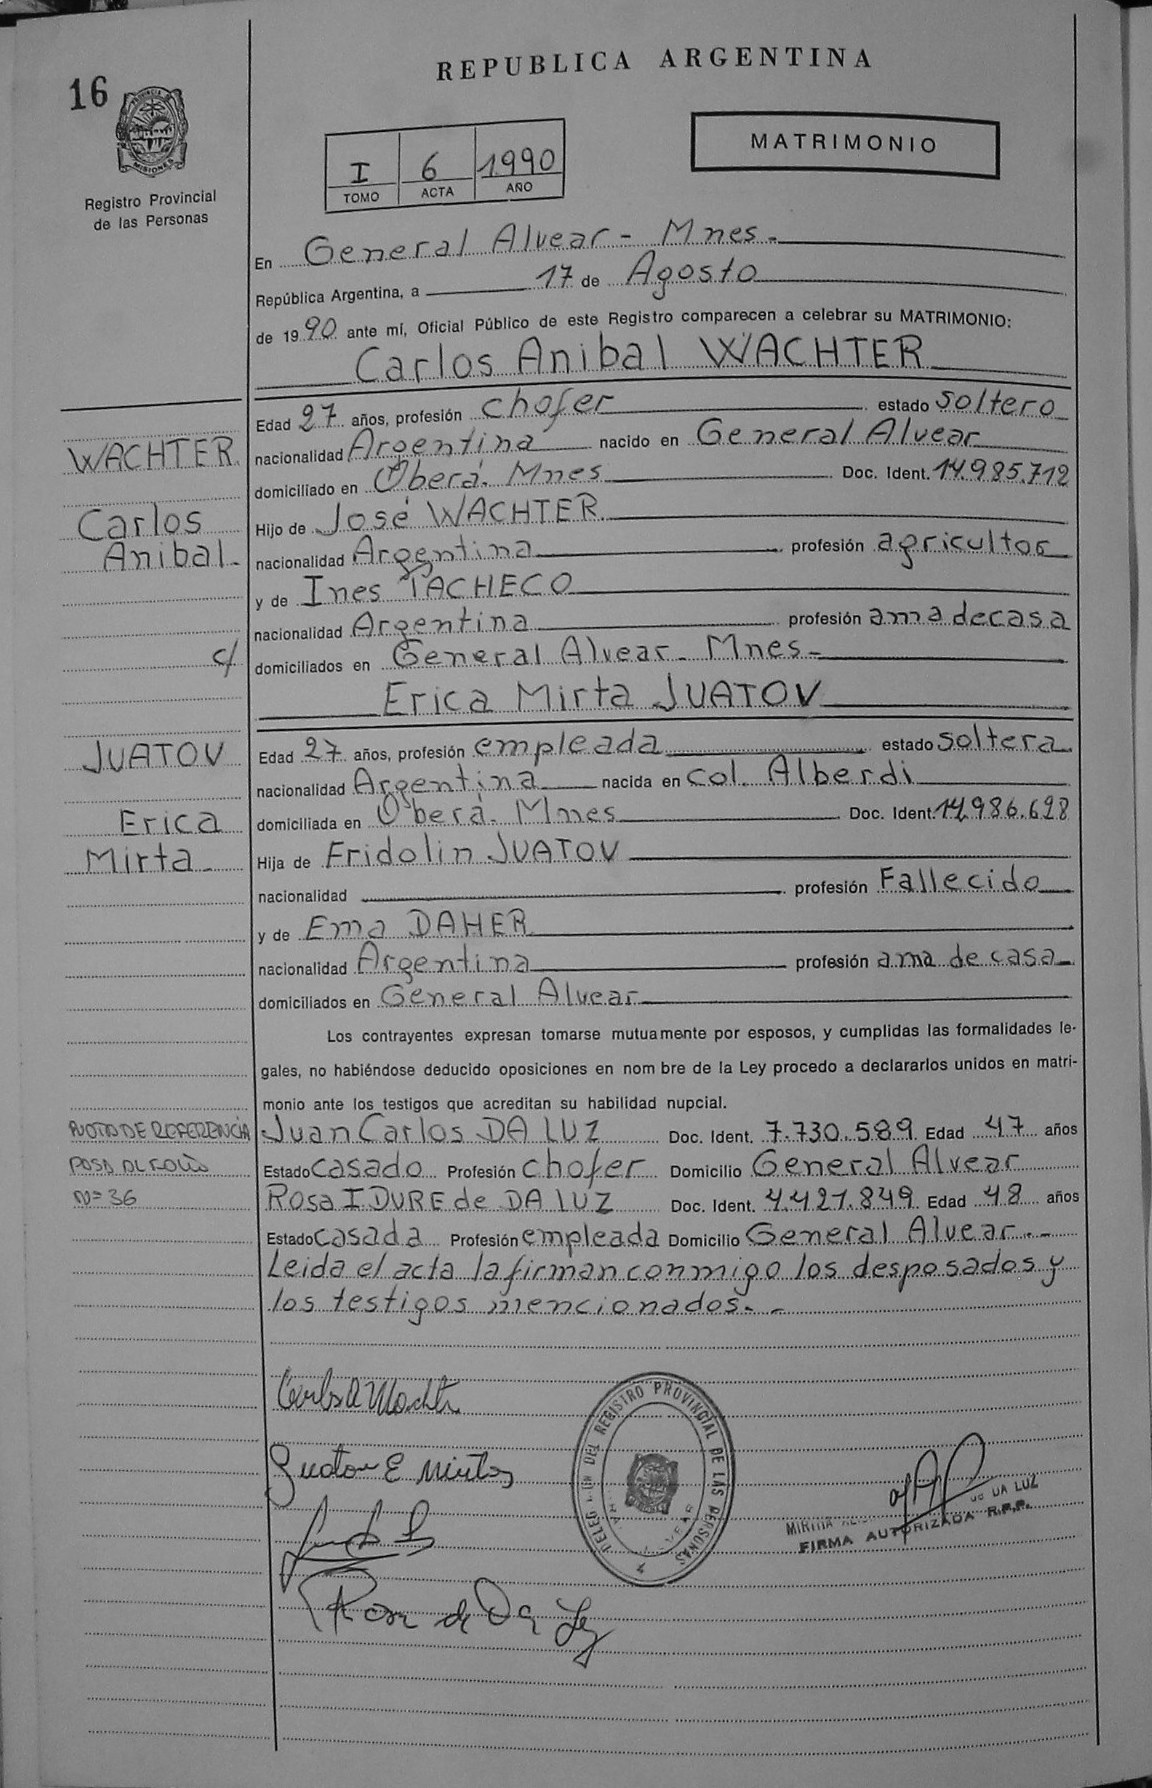 REPUBLICA ARGENTINA
16
PROVINCIA DE MISIONES
Registro Provincial
de las Personas
I 6 1990
TOMO ACTA AÑO
MATRIMONIO
En General Alvear - Mnes.
República Argentina, a 17 de Agosto
de 1990 ante mí, Oficial Público de este Registro comparecen a celebrar su MATRIMONIO:
Carlos Anibal WACHTER
Edad 27 años, profesión chofer estado soltero
WACHTER nacionalidad Argentina nacido en General Alvear
domiciliado en Oberá. Mnes Doc. Ident. 14.985.712
Carlos Hijo de José WACHTER
Anibal. nacionalidad Argentina profesión agricultor
y de Ines PACHECO
nacionalidad Argentina profesión ama de casa
c/ domiciliados en General Alvear. Mnes.
Erica Mirta JUATOV
JUATOV Edad 27 años, profesión empleada estado soltera
nacionalidad Argentina nacida en col. Alberdi
Erica domiciliada en Oberá. Mnes Doc. Ident. 14.986.628
Mirta Hija de Fridolin JUATOV
nacionalidad profesión Fallecido
y de Ema DAHER
nacionalidad Argentina profesión ama de casa
domiciliados en General Alvear
Los contrayentes expresan tomarse mutuamente por esposos, y cumplidas las formalidades le-
gales, no habiéndose deducido oposiciones en nom bre de la Ley procedo a declararlos unidos en matri-
monio ante los testigos que acreditan su habilidad nupcial.
DE REFERENCIA Juan Carlos DA LUZ Doc. Ident. 7.730.589 Edad 47 años
PASA AL FOLIO Estado casado Profesión chofer Domicilio General Alvear
Nº 36 Rosa IDURE de DA LUZ Doc. Ident. 4.421.849 Edad 48 años
Estado casada Profesión empleada Domicilio General Alvear.
Leida el acta la firman conmigo los desposados y
los testigos mencionados.
Carlos A Wachter
Juatov E Mirta
DEL REGISTRO PROVINCIAL DE LAS PERSONAS
DA LUZ
FIRMA AUTORIZADA R.P.P.
Rosa de Da Luz